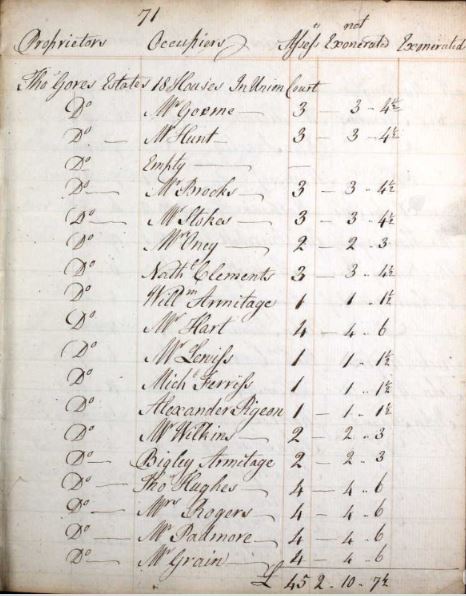 71
Proprietors Occupiers Assess.ts not Exonerated Exonerated
Tho.s Gores Estates 18 Houses In Union Court
D.o M.r Gorme — 3 — 3 .. 4½
D.o — M.r Hunt — 3 — 3 .. 4½
D.o Empty — —
D.o — M.r Brooks — 3 — 3 .. 4½
D.o — M.r Stokes — 3 — 3 .. 4½
D.o — M.r Oney — 2 — 2 .. 3
D.o Nath.l Clements 3 — 3 .. 4½
D.o Will.m Armitage 1 1 .. 1½
D.o M.r Hart 4 — 4 .. 6
D.o M.r Lewiss 1 1 .. 1½
D.o Mich.l Ferriss 1 1 .. 1½
D.o Alexander Pigeon 1 — 1 .. 1½
D.o M.r Wilkins — 2 — 2 .. 3
D.o — Bigley Armitage 2 — 2 .. 3
D.o — Tho.s Hughes — 4 — 4 .. 6
D.o — M.rs Rogers — 4 — 4 .. 6
D.o — M.r Padmore — 4 — 4 .. 6
D.o — M.r Grain — 4 — 4 .. 6
£ 45 2 .. 10 .. 7½